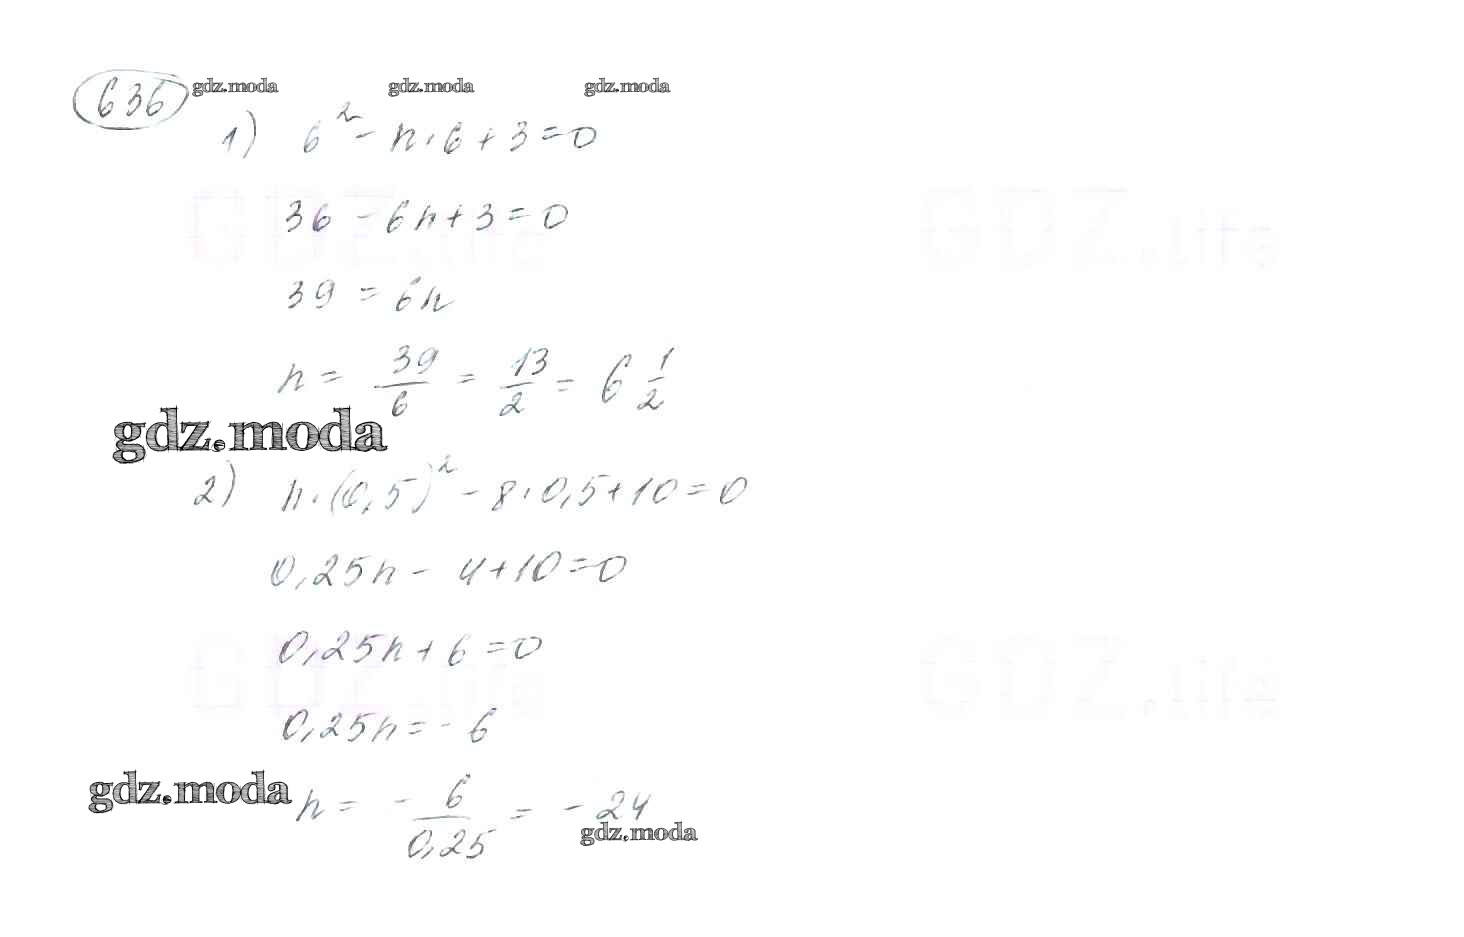 636
gdz.moda gdz.moda gdz.moda
1) 6² - n·6 + 3 = 0
GDZ.life GDZ.life
36 - 6n + 3 = 0
39 = 6n
n = 39/6 = 13/2 = 6 1/2
gdz.moda
2) n·(0,5)² - 8·0,5 + 10 = 0
0,25n - 4 + 10 = 0
0,25n + 6 = 0
GDZ.life GDZ.life
0,25n = - 6
gdz.moda
n = - 6/0,25 = - 24
gdz.moda